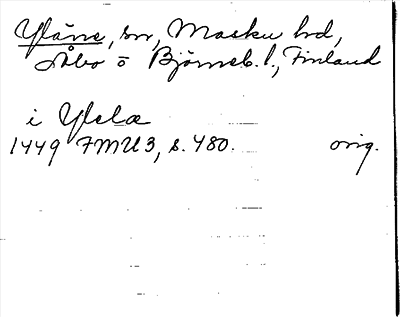 Yläne, sn, Masku hd,
Åbo o Björneb. l., Finland
i Ylelæ
1449 FMU 3, s. 480. orig.